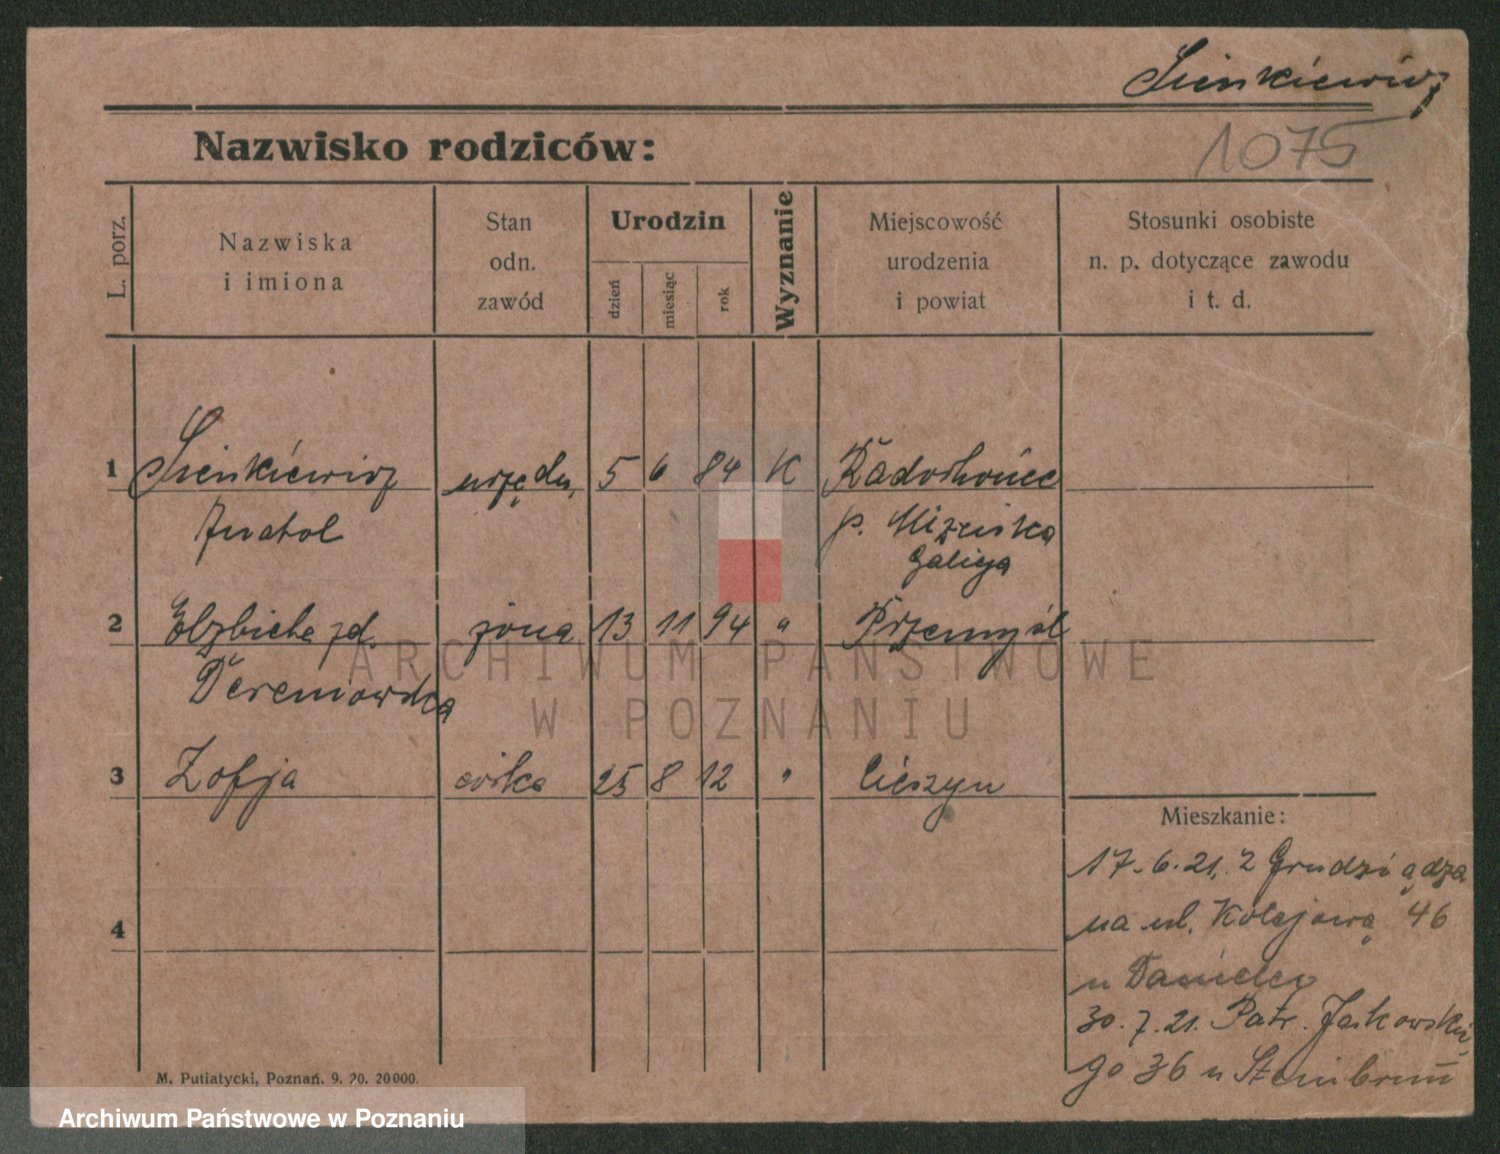 Sienkiewicz
1075
Nazwisko rodziców:
L. porz.
Nazwiska
i imiona
Stan
odn.
zawód
Urodzin
dzień
miesiąc
rok
Wyznanie
Miejscowość
urodzenia
i powiat
Stosunki osobiste
n. p. dotyczące zawodu
i t. d.
1 Sienkiewicz urzędn. 5 6 84 K
Anatol p.
Galicja
2 Elżbieta zd. żona 13 11 94 " Przemyśl
3 Zofja córka 25 8 12 " Cieszyn
4
Mieszkanie:
17.6.21. z Grudziądza
na ul. Kolejową 46
u
30.7.21. Patr. Jackowskie
go 36 u
M. Putiatycki, Poznań. 9. 20. 20000.
ARCHIWUM PAŃSTWOWE
W POZNANIU
Archiwum Państwowe w Poznaniu